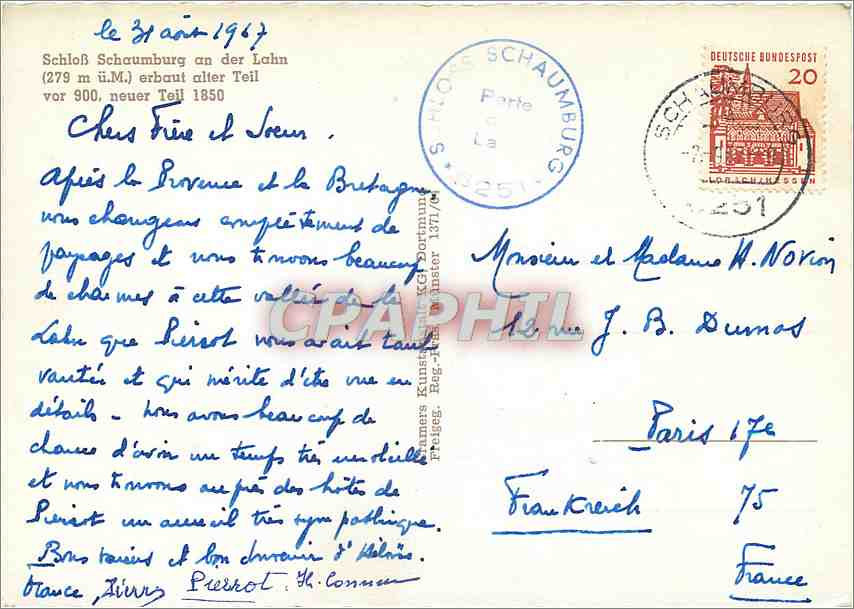 le 31 août 1967
Schloß Schaumburg an der Lahn
(279 m ü.M.) erbaut alter Teil
vor 900, neuer Teil 1850
Chers Frère et Soeur.
Après la Provence et la Bretagne
nous changeons complètement de
paysages et nous trouvons beaucoup
de charmes à cette vallée de la
Lahn que Pierrot nous avait tant
vantée et qui mérite d'être vue en
détails - Nous avons beaucoup de
chance d'avoir un temps très ensoleillé
et nous trouvons auprès des hôtes de
Pierrot un accueil très sympathique.
Bons baisers et bon souvenir d'
France, Pierre Pierrot.
SCHLOSS SCHAUMBURG
Perle
La
6251
DEUTSCHE BUNDESPOST
20
LORSCH/HESSEN
SCHAUMBURG
6251
Kramers Kunstanstalt KG. Dortmund
Freigeg. Reg.-Präs. Münster 1371/64
CPAPHIL
Monsieur et Madame H. Novion
12 rue J. B. Dumas
Paris 17e
Frankreich 75
France